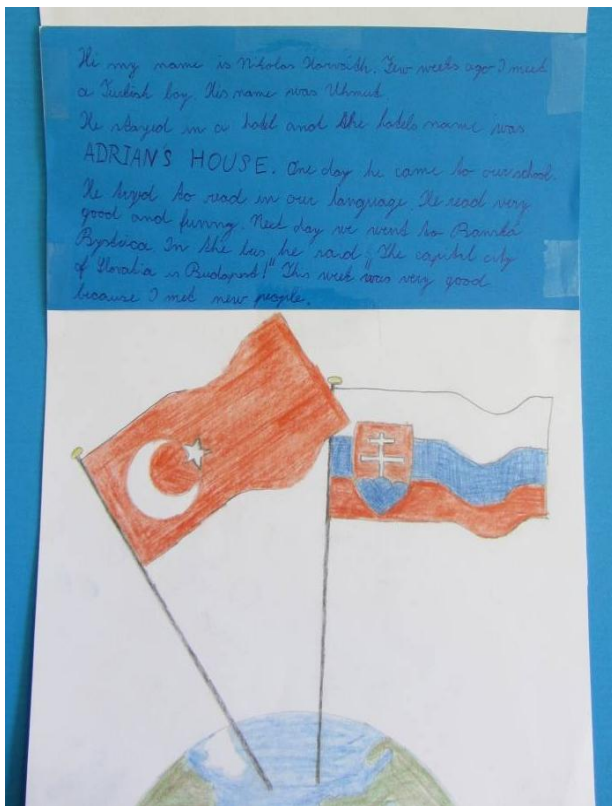 Hi my name is Nikolas Horváth. Few weeks ago I meet
a Turkish boy. His name was Uhmut.
He stayed in a hotel and the hotels name was
ADRIAN'S HOUSE. One day he came to our school.
He tryed to read in our language. He read very
good and funny. Next day we went to Banská
Bystrica In the bus he said „The capitel city
of Slovakia is Budapest!" This week was very good
because I met new people.